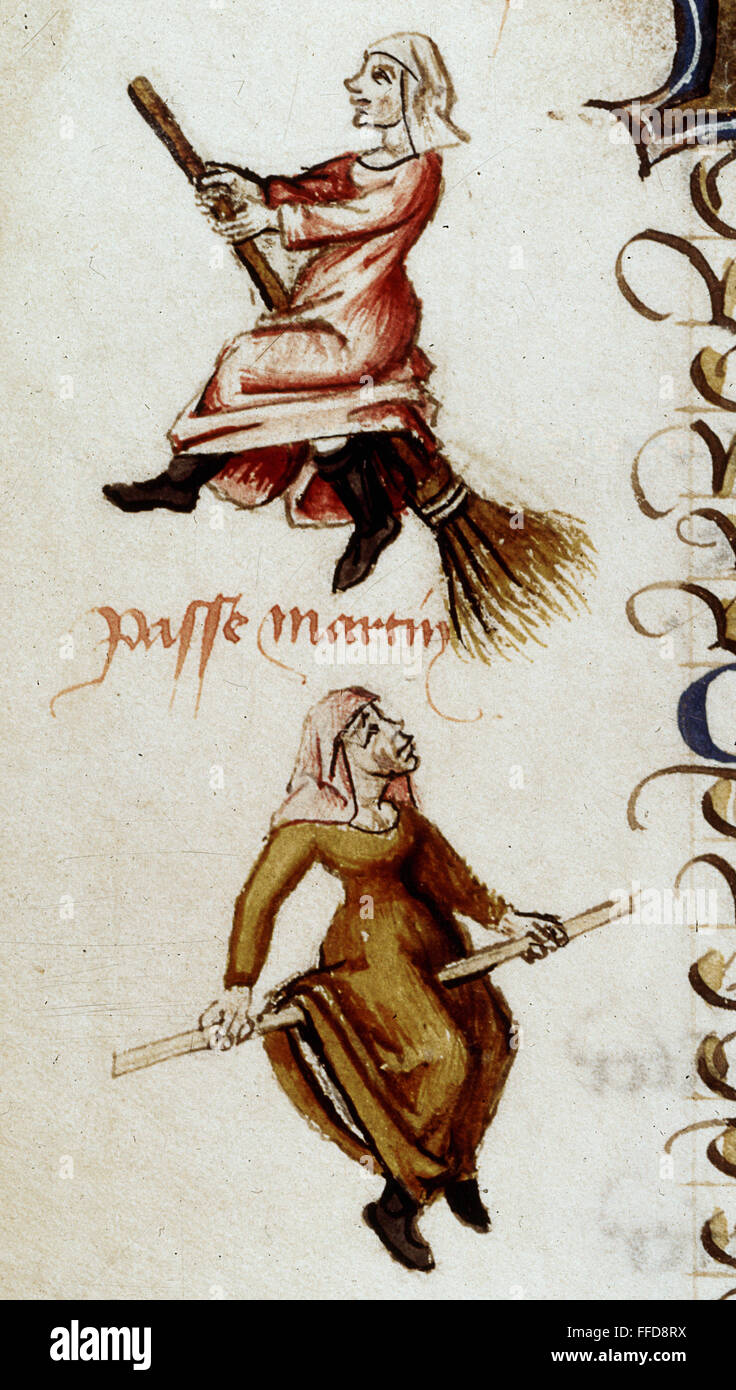 passe martin
alamy
alamy
Image ID: FFD8RX
www.alamy.com